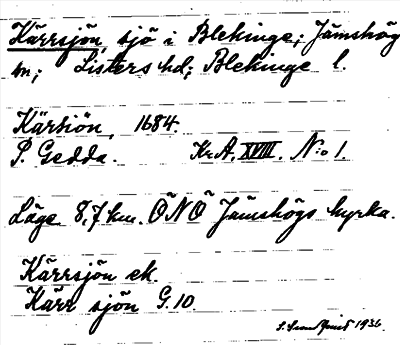 Kärrsjön, sjö i Blekinge; Jämshög
sn; Listers hd; Blekinge l.
Kärsiön, 1684.
P. Gedda. Kr.A. XVIII. N:o 1.
Läge 8,7 km. ÖNÖ Jämshögs kyrka.
Kärrsjön ek.
Kärr sjön G.10
1936